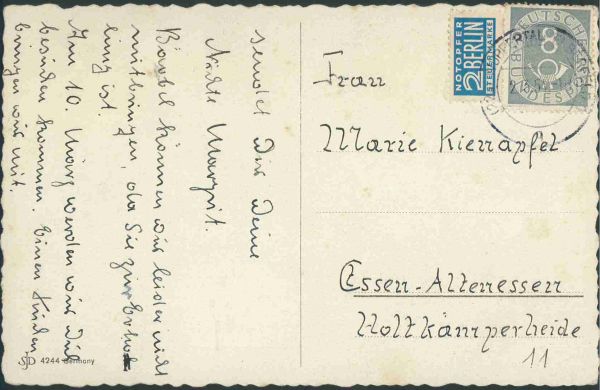 sendet Dir Deine
Nichte Margit.
Bärbel können wir leider nicht
mitbringen, da Sie zur Erho-
lung ist.
Am 10. März werden wir Dich
besuchen kommen. Einen Kuchen
bringen wir mit.
NOTOPFER
2 BERLIN
STEUERMARKE
DEUTSCHE
BUNDESPOST
8
Frau
Marie Kienapfel
Essen-Altenessen
Holtkämperheide
11
SJD 4244 Germany